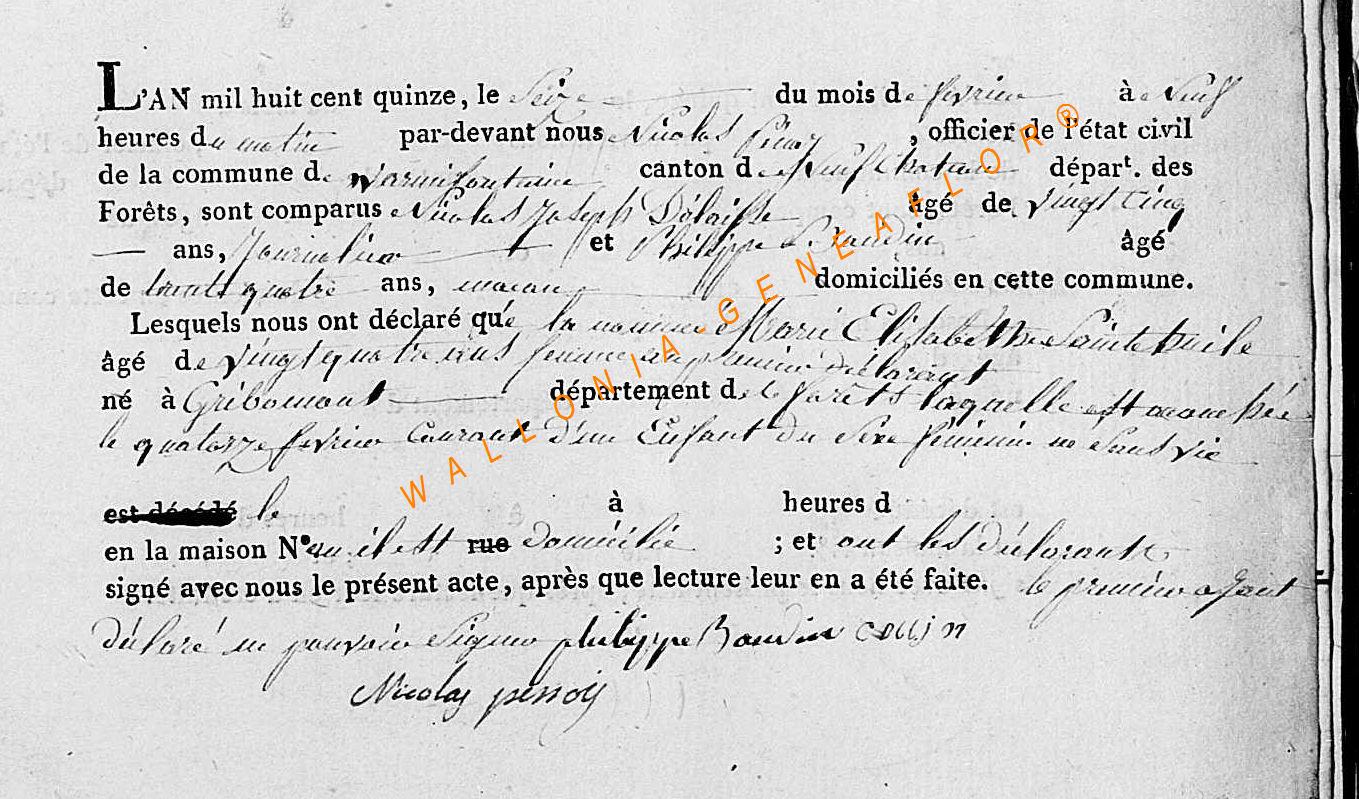 L'AN mil huit cent quinze, le Seize du mois de fevrier à Neuf
heures du matin par-devant nous Nicolas , officier de l'état civil
de la commune de Warmifontaine canton de Neufchateau départ. des
Forêts, sont comparus Nicolas Joseph Delaisse âgé de vingt cinq
ans, Journalier et Philippe Baudin âgé
de trente quatre ans, macon domiciliés en cette commune.
Lesquels nous ont déclaré que la nommée Marie Elisabeth
âgé de vingt quatre ans femme au premier déclarant
né à Gribomont département des forêts laquelle est
le quatorze fevrier courant d'un Enfant du Sexe féminin né Sans vie
est décédé le à heures d
en la maison N° ou il est rue domicilié ; et ont les déclarants
signé avec nous le présent acte, après que lecture leur en a été faite. le premier ayant
déclaré ne pouvoir Signer philippe Baudin
Nicolas
WALLONIA-GENEAFLOR®